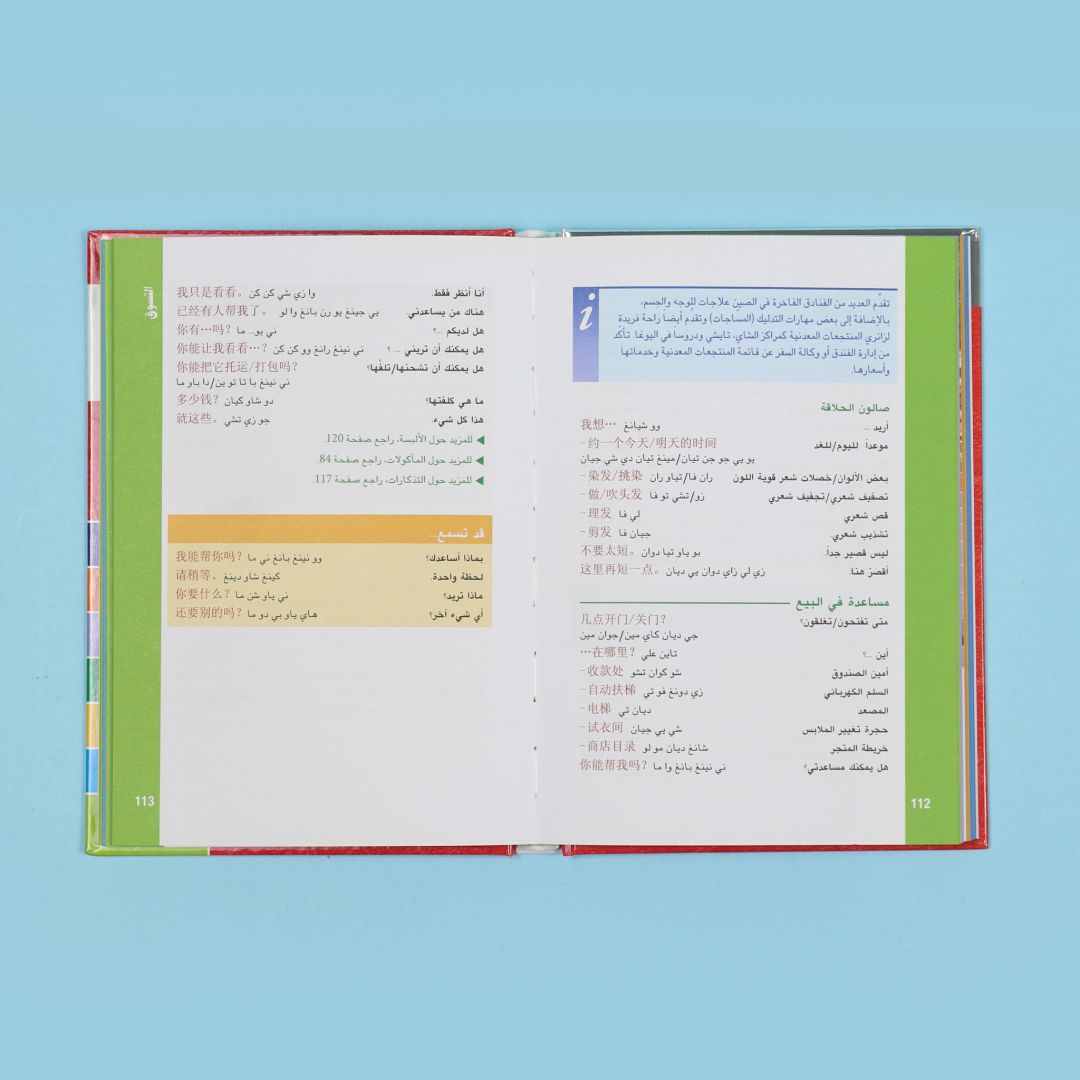 تقدّم العديد من الفنادق الفاخرة في الصين علاجات للوجه والجسم،
بالإضافة إلى بعض مهارات التدليك (المساجات) وتقدم أيضاً راحة فريدة
لزائري المنتجعات المعدنية كمراكز الشاي، تايشي ودروساً في اليوغا. تأكّد
من إدارة الفندق أو وكالة السفر عن قائمة المنتجعات المعدنية وخدماتها
وأسعارها.
صالون الحلاقة
أريد ... وو شيانغ 我想…
موعداً لليوم/للغد -约一个今天/明天的时间
يو يي جو جن تيان/مينغ تيان دي شي جيان
بعض الألوان/خصلات شعر قوية اللون ران فا/تياو ران -染发/挑染
تصفيف شعري/تجفيف شعري زو/تشي تو فا -做/吹头发
قص شعري لي فا -理发
تشذيب شعري. جيان فا -剪发
ليس قصير جداً. بو ياو تيا دوان 不要太短。
أقصَرْ هنا. زي لي زاي دوان يي ديان 这里再短一点。
مساعدة في البيع
متى تفتحون/تغلقون؟ 几点开门/关门?
جي ديان كاي مين/جوان مين
أين ...؟ تاين علي …在哪里?
أمين الصندوق شو كوان تشو -收款处
السلم الكهربائي زي دونغ فو تي -自动扶梯
المصعد ديان تي -电梯
حجرة تغيير الملابس شي يي جيان -试衣间
خريطة المتجر شانغ ديان مو لو -商店目录
هل يمكنك مساعدتي؟ ني نينغ بانغ وا ما 你能帮我吗?
112
التسوق
أنا أنظر فقط. وا زي شي كن كن 我只是看看。
هناك من يساعدني. يي جينغ يو رن بانغ وا لو 已经有人帮我了。
هل لديكم ...؟ ني يو... ما 你有…吗?
هل يمكنك أن تريني ... ؟ ني نينغ رانغ وو كن كن 你能让我看看…?
هل يمكنك أن تشحنها/تلفّها؟ 你能把它托运/打包吗?
ني نينغ با تا تو ين/دا باو ما
ما هي كلفتها؟ دو شاو كيان 多少钱?
هذا كل شيء. جو زي تشي 就这些。
للمزيد حول الألبسة، راجع صفحة 120.
للمزيد حول المأكولات، راجع صفحة 84.
للمزيد حول التذكارات، راجع صفحة 117.
قد تسمع...
بماذا أساعدك؟ وو نينغ بانغ ني ما 我能帮你吗?
لحظة واحدة. كينغ شاو دينغ 请稍等。
ماذا تريد؟ ني ياو شن ما 你要什么?
أي شيء آخر؟ هاي ياو بي دو ما 还要别的吗?
113